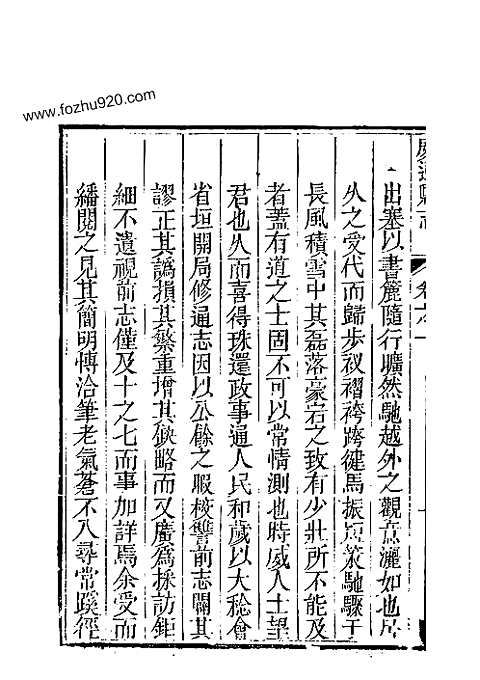 www.fozhu920.com
出塞以書簏隨行曠然馳越外之觀意灑如也居
久之受代而歸步衩褶袴跨健馬振短策馳驟于
長風積雪中其磊落豪宕之致有少壯所不能及
者蓋有道之士固不可以常情測也時威人士望
君也久而喜得珠還政事通人民和歲以大稔會
省垣開局修通志因以公餘之暇校讐前志闢其
謬正其譌損其繁重增其缺略而又廣為採訪鉅
細不遺視前志僅及十之七而事加詳焉余受而
繙閱之見其簡明博洽筆老氣蒼不入尋常蹊徑